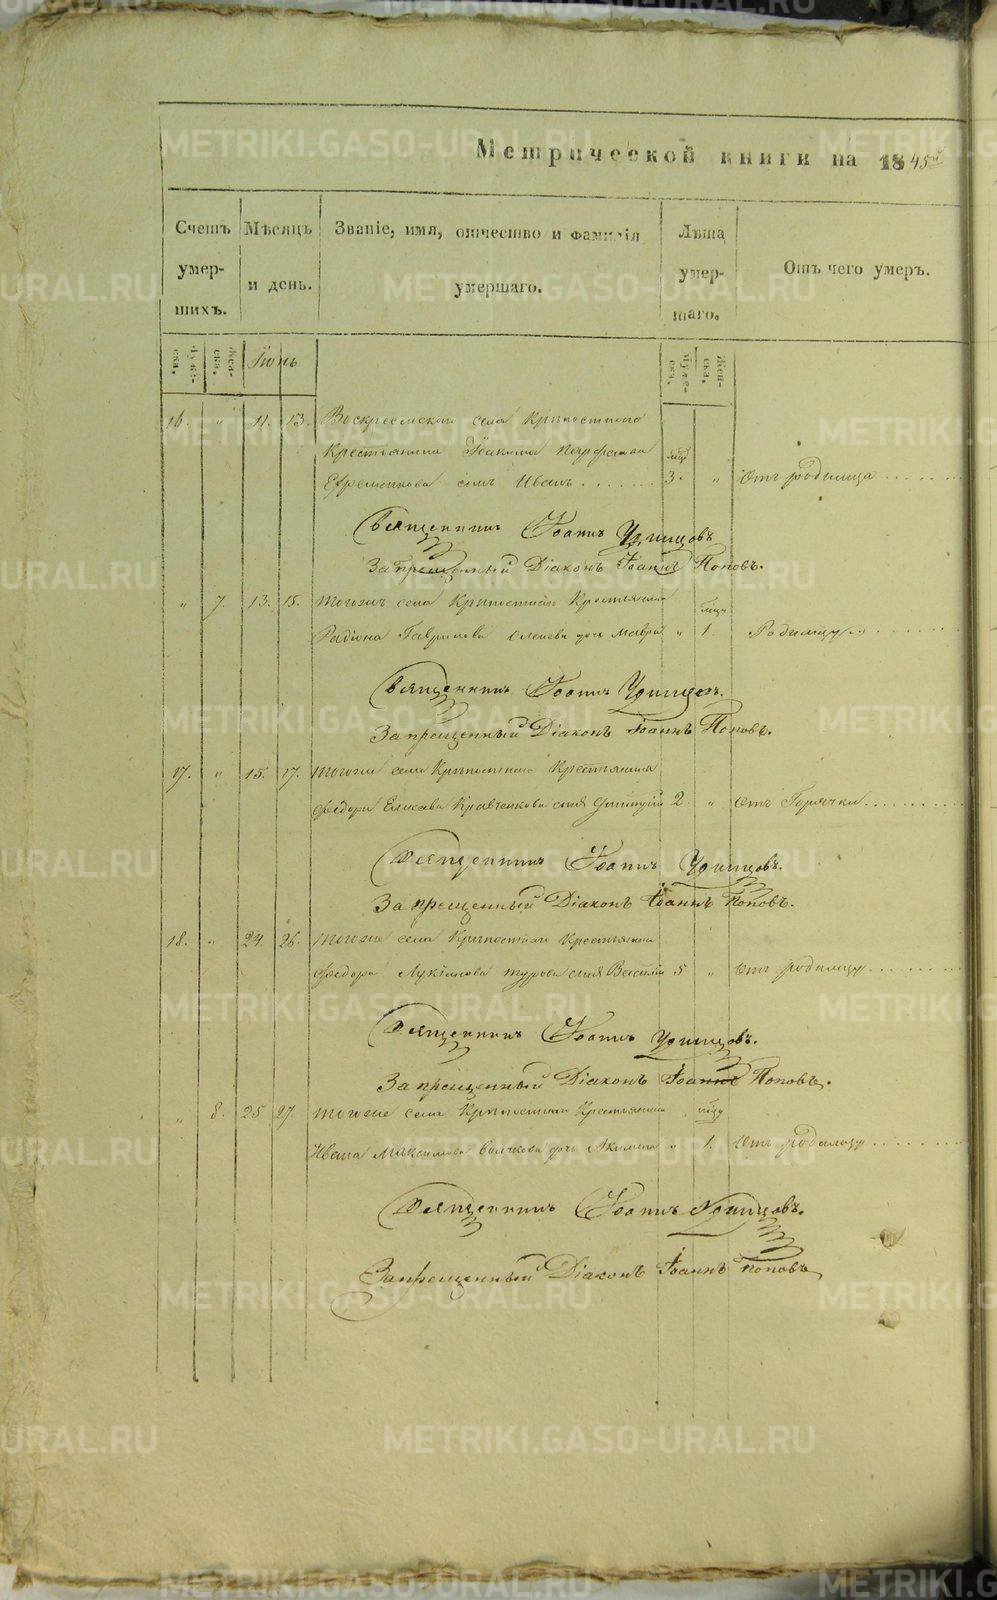 Метрической книги на 1845й
Счетъ умер-шихъ.
Мѣсяцъ и день.
Званіе, имя, отчество и фамилія умершаго.
Лѣта умер-шаго.
Отъ чего умеръ.
Муже-ска,
Жен-ска,
Іюнь
Муже-ска,
Жен-ска,
16. " 11. 13. Воскресенскаго села Крѣпостнаго
Крестьянина Іоакима
Ефременкова сынъ Иванъ 3. " Отъ родимца
Священникъ Іоаннъ Удинцовъ
Запрещенный Діаконъ Іоаннъ Поповъ.
" 7. 13. 15. тогоже села Крѣпостнаго Крестьянина
Радіона Гаврилова дочь Мавра " 1. Родимцу
Священникъ Іоаннъ Удинцовъ.
Запрещенный Діаконъ Іоаннъ Поповъ.
17. " 15. 17. тогоже села Крѣпостнаго Крестьянина
Федора Елисѣева Кравченкова сынъ Димитрій 2. " Отъ Горячки
Священникъ Іоаннъ Удинцовъ.
Запрещенный Діаконъ Іоаннъ Поповъ.
18. " 24. 26. тогоже села Крѣпостнаго Крестьянина
Федора Лукіанова Турова сынъ Василій 5 " Отъ родимцу
Священникъ Іоаннъ Удинцовъ.
Запрещенный Діаконъ Іоаннъ Поповъ.
" 8. 25 27 тогоже села Крѣпостнаго Крестьянина
Ивана Максимова Волчкова дочь Акилина " 1. Отъ родимцу
Священникъ Іоаннъ Удинцовъ.
Запрещенный Діаконъ Іоаннъ Поповъ
METRIKI.GASO-URAL.RU